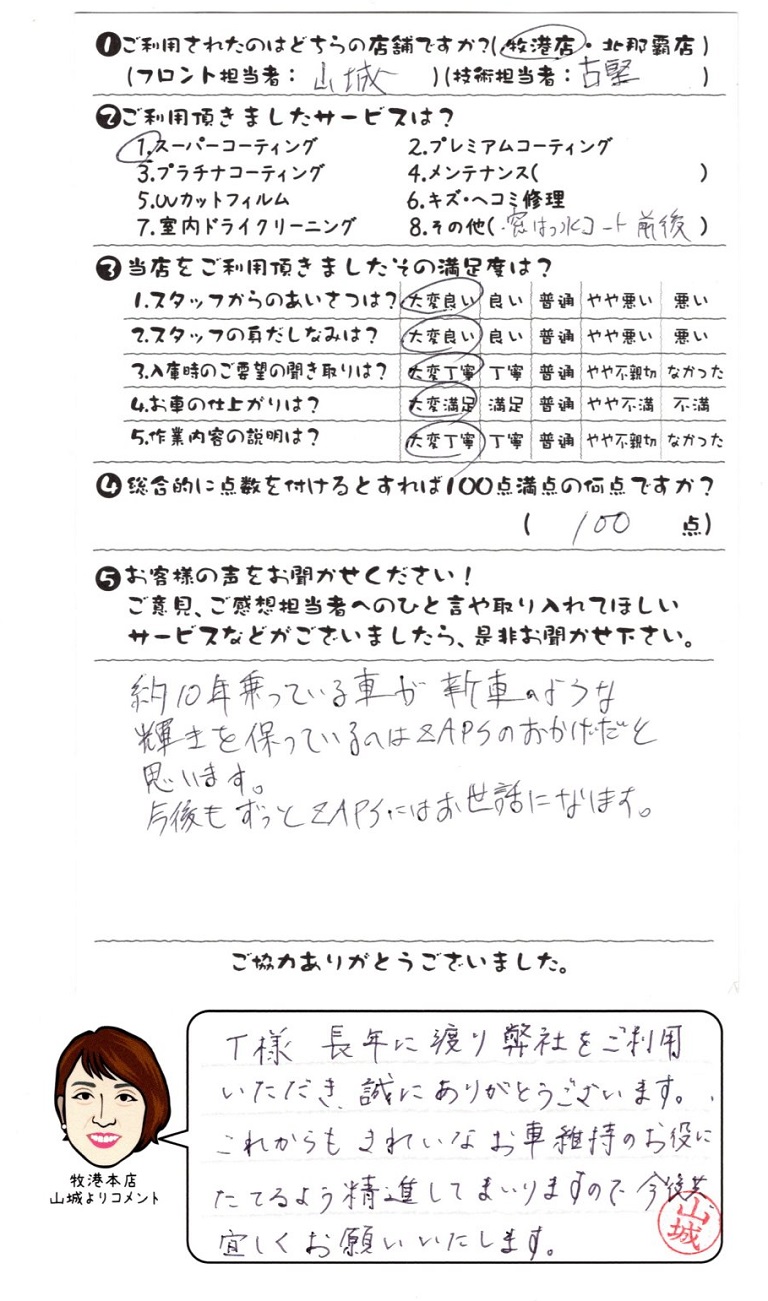 ❶ご利用されたのはどちらの店舗ですか?(牧港店・北那覇店)
(フロント担当者: 山城 )(技術担当者: 古堅 )
❷ご利用頂きましたサービスは?
1.スーパーコーティング 2.プレミアムコーティング
3.プラチナコーティング 4.メンテナンス( )
5.UVカットフィルム 6.キズ・ヘコミ修理
7.室内ドライクリーニング 8.その他(窓はっ水コート前後)
❸当店をご利用頂きましたその満足度は?
1.スタッフからのあいさつは? 大変良い 良い 普通 やや悪い 悪い
2.スタッフの身だしなみは? 大変良い 良い 普通 やや悪い 悪い
3.入庫時のご要望の聞き取りは? 大変丁寧 丁寧 普通 やや不親切 なかった
4.お車の仕上がりは? 大変満足 満足 普通 やや不満 不満
5.作業内容の説明は? 大変丁寧 丁寧 普通 やや不親切 なかった
❹総合的に点数を付けるとすれば100点満点の何点ですか?
( 100 点)
❺お客様の声をお聞かせください!
ご意見、ご感想担当者へのひと言や取り入れてほしい
サービスなどがございましたら、是非お聞かせ下さい。
約10年乗っている車が新車のような
輝きを保っているのはZAPSのおかげだと
思います。
今後もずっとZAPSにはお世話になります。
ご協力ありがとうございました。
T様 長年に渡り弊社をご利用
いただき、誠にありがとうございます。
これからもきれいなお車維持のお役に
たてるよう精進してまいりますので今後共
宜しくお願いいたします。
山城
牧港本店
山城よりコメント